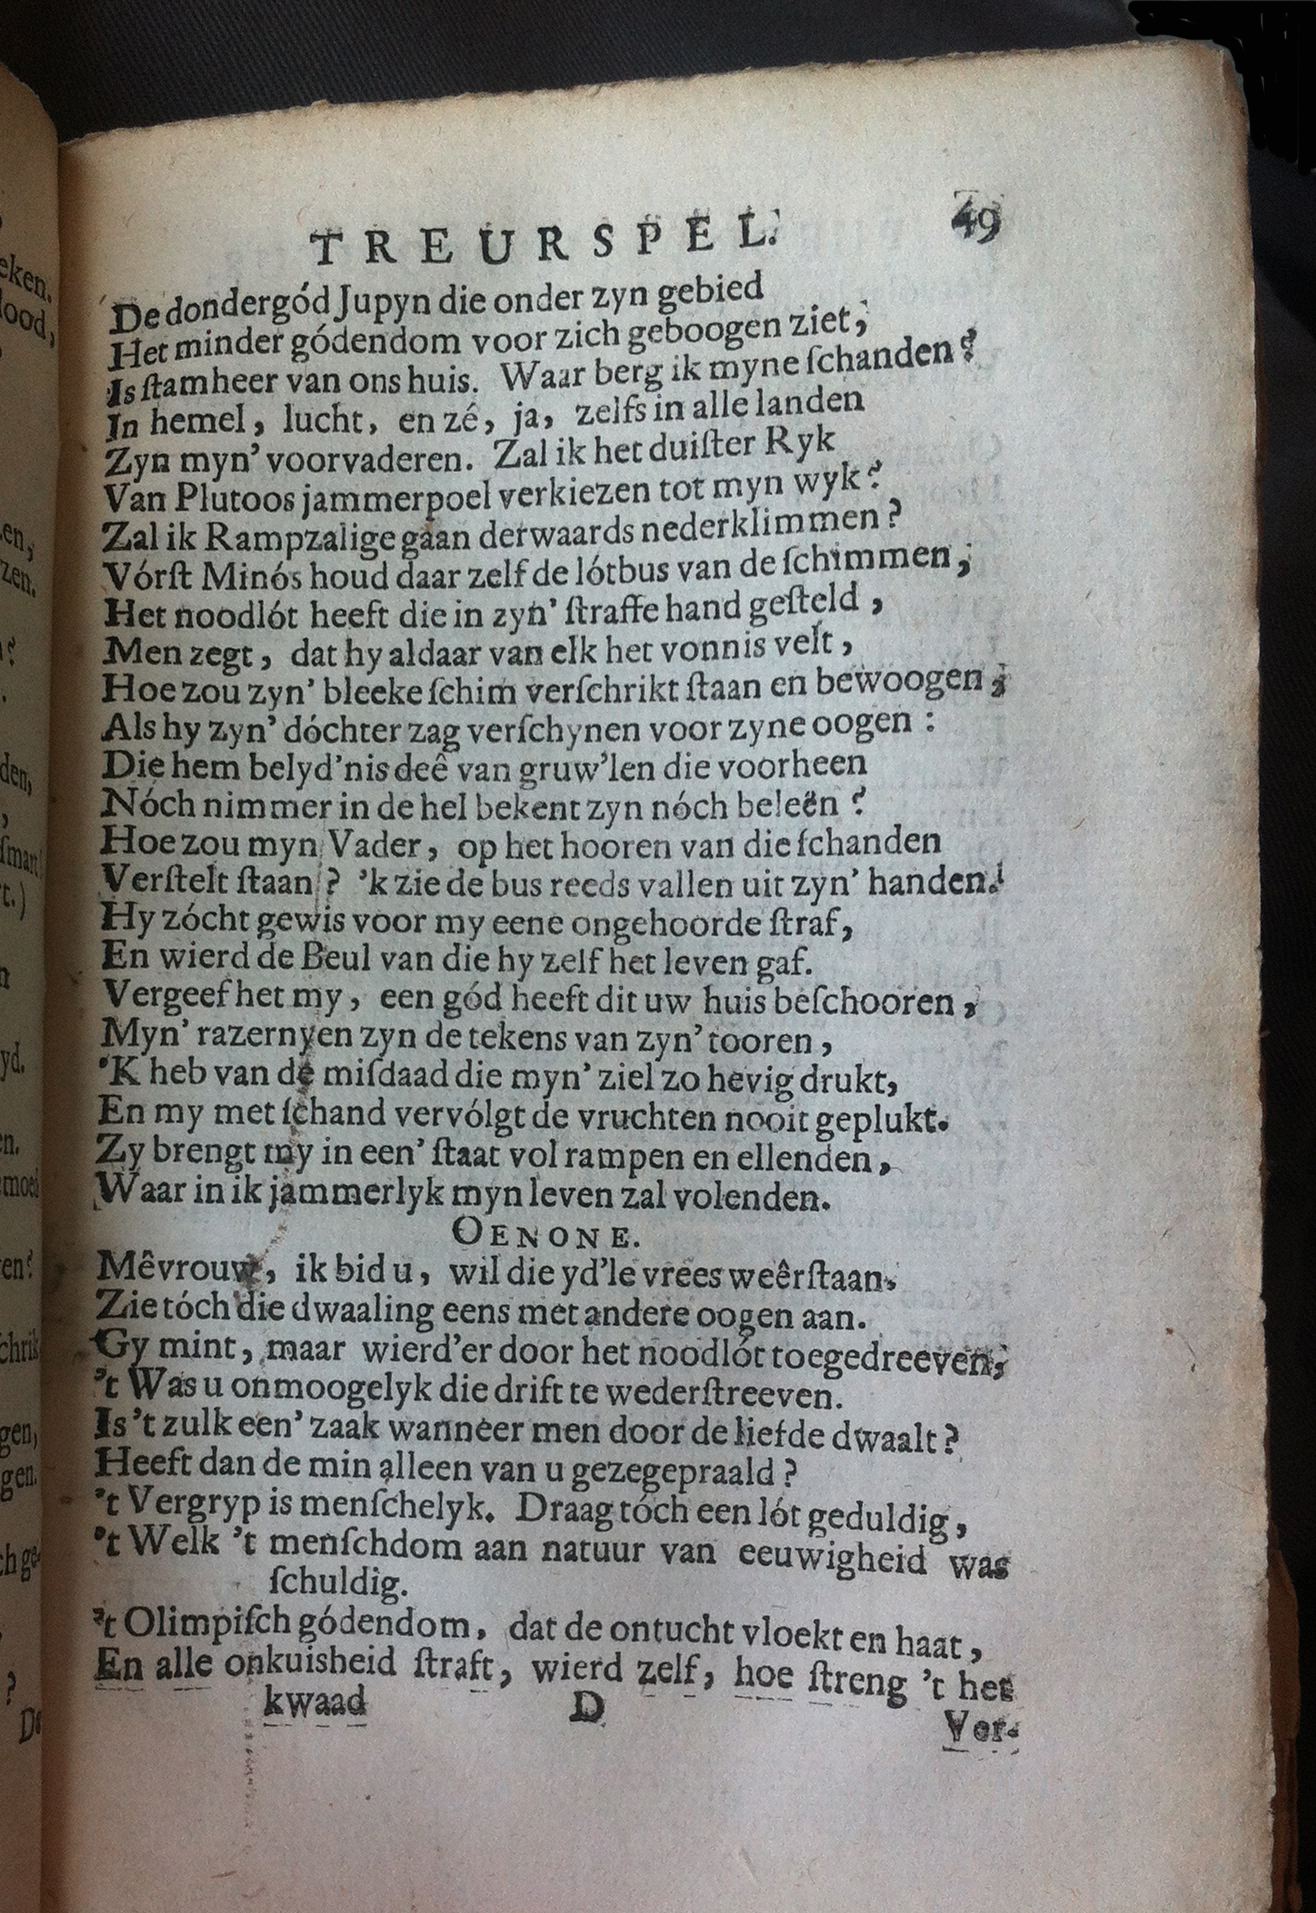 TREURSPEL. 49
De dondergód Jupyn die onder zyn gebied
Het minder gódendom voor zich geboogen ziet;
Is ſtamheer van ons huis. Waar berg ik myne ſchanden?
In hemel, lucht, en zé, ja, zelfs in alle landen
Zyn myn' voorvaderen. Zal ik het duiſter Ryk
Van Plutoos jammerpoel verkiezen tot myn wyk?
Zal ik Rampzalige gaan derwaards nederklimmen?
Vórſt Minós houd daar zelf de lótbus van de ſchimmen;
Het noodlót heeft die in zyn' ſtraffe hand geſteld,
Men zegt, dat hy aldaar van elk het vonnis velt,
Hoe zou zyn' bleeke ſchim verſchrikt ſtaan en bewoogen;
Als hy zyn' dóchter zag verſchynen voor zyne oogen:
Die hem belyd'nis deê van gruw'len die voorheen
Nóch nimmer in de hel bekent zyn nóch beleën?
Hoe zou myn Vader, op het hooren van die ſchanden
Verſtelt ſtaan? 'k zie de bus reeds vallen uit zyn' handen.
Hy zócht gewis voor my eene ongehoorde ſtraf,
En wierd de Beul van die hy zelf het leven gaf.
Vergeef het my, een gód heeft dit uw huis beſchooren,
Myn' razernyen zyn de tekens van zyn' tooren,
'K heb van de miſdaad die myn' ziel zo hevig drukt,
En my met ſchand vervólgt de vruchten nooit geplukt.
Zy brengt my in een' ſtaat vol rampen en ellenden,
Waar in ik jammerlyk myn leven zal volenden.
OENONE.
Mêvrouw, ik bid u, wil die yd'le vrees weêrſtaan.
Zie tóch die dwaaling eens met andere oogen aan.
Gy mint, maar wierd'er door het noodlót toegedreeven;
't Was u onmoogelyk die drift te wederſtreeven.
Is 't zulk een' zaak wanneer men door de liefde dwaalt?
Heeft dan de min alleen van u gezegepraald?
't Vergryp is menſchelyk. Draag tóch een lót geduldig,
't Welk 't menſchdom aan natuur van eeuwigheid was
ſchuldig.
't Olimpiſch gódendom, dat de ontucht vloekt en haat,
En alle onkuisheid ſtraft, wierd zelf, hoe ſtreng 't het
kwaad D
Ver-